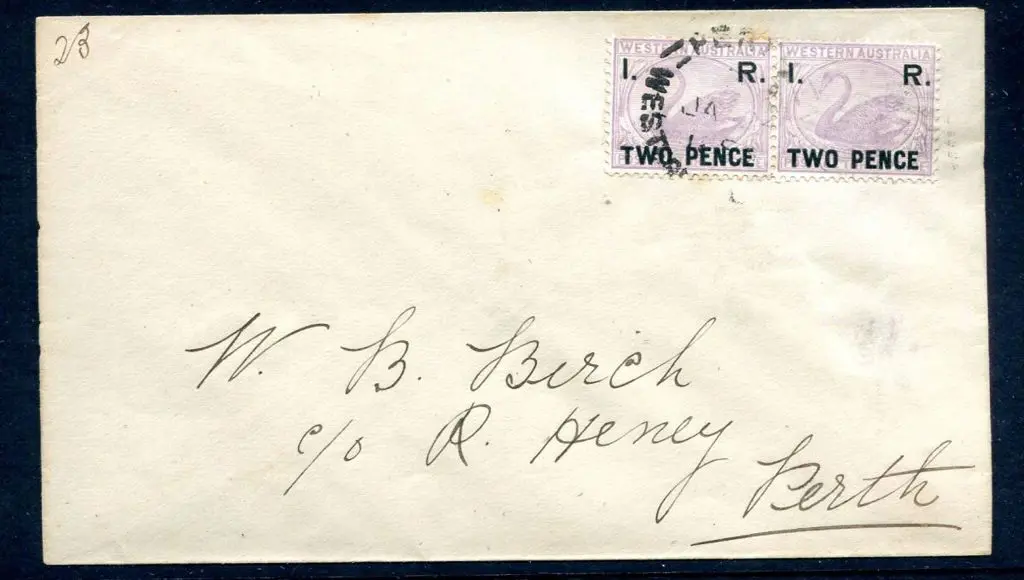 23
WESTERN AUSTRALIA
I. R.
TWO PENCE
WESTERN AUSTRALIA
I. R.
TWO PENCE
WEST
JA
W. B. Birch
c/o R. Heney
Perth